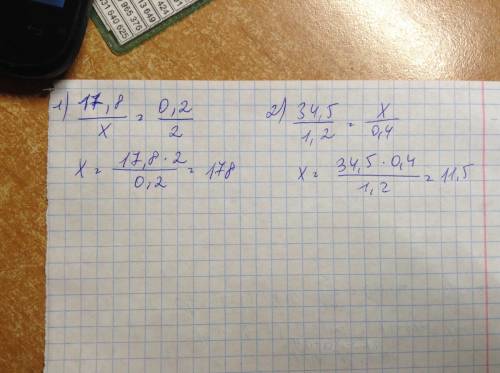 1) 17,8/x = 0,2/2
x = 17,8·2/0,2 = 178
2) 34,5/1,2 = x/0,4
x = 34,5·0,4/1,2 = 11,5